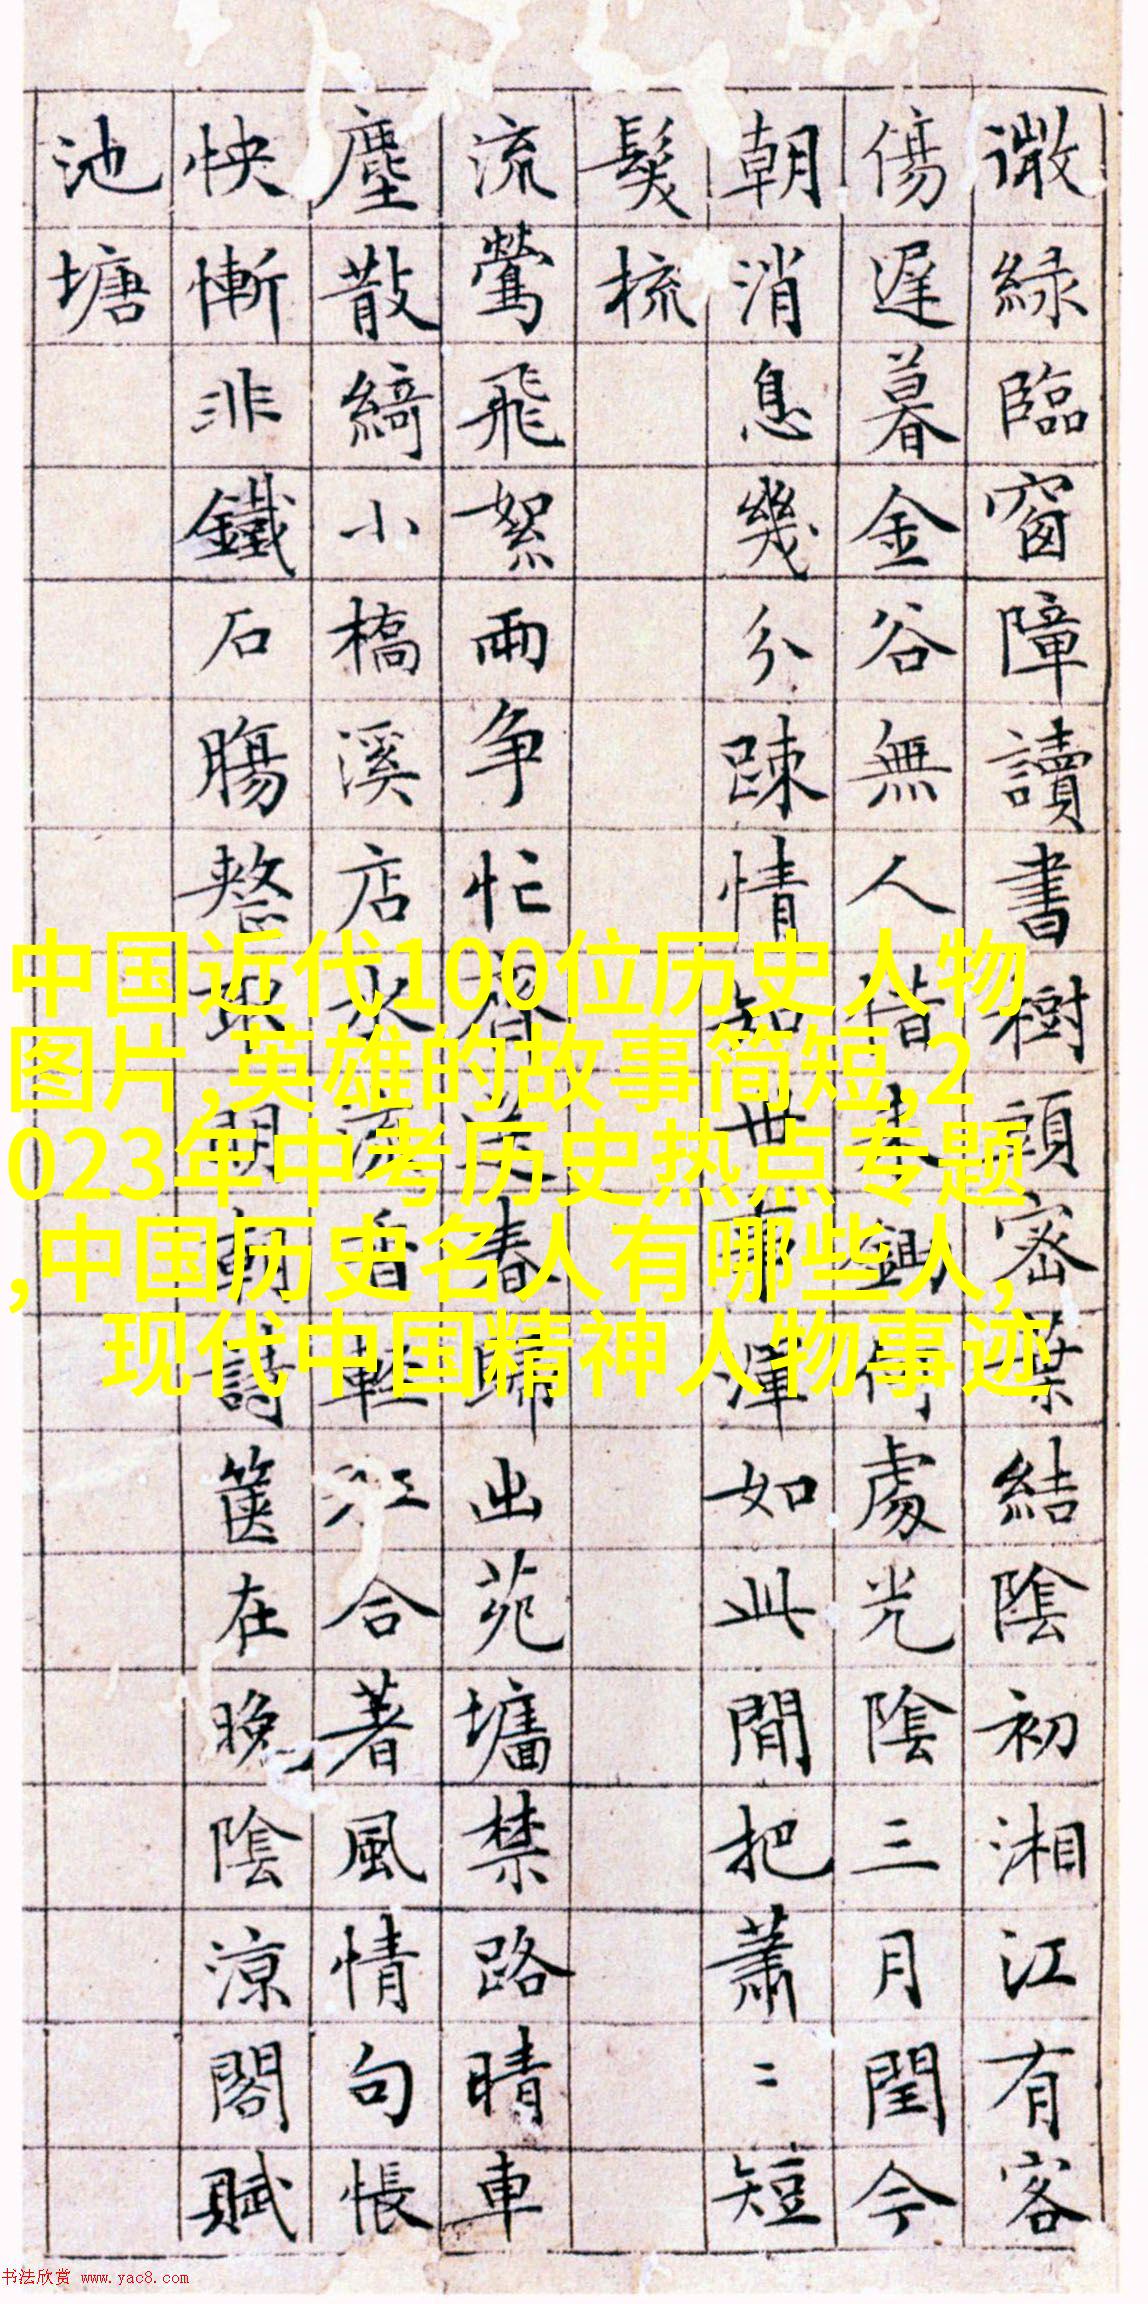 微綠臨窗障讀書樹頭密葉結陰初湘江有客
傷遲暮金谷無人惜未鋤何處光陰三月閏今
朝消息幾分踈情知世事渾如此間把蕭〻短
髮梳
流鶯飛絮兩争忙送春歸出苑墻禁路晴車
塵散綺小橋溪店水流香輕江合著風情句悵
怏慚非鐵石腸整取明朝詩篋在晚陰涼閣賦
池塘
中国近代100位历史人物
图片,英雄的故事简短,2
023年中考历史热点专题
,中国历史名人有哪些人,
现代中国精神人物事迹
书法欣赏 www.yac8.com